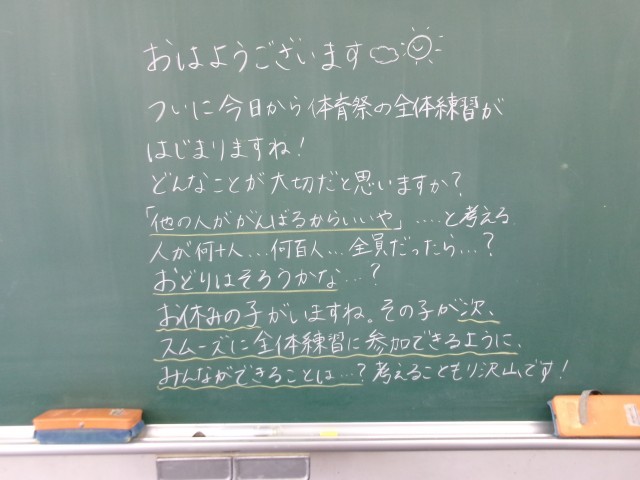 おはようございます
ついに今日から体育祭の全体練習が
はじまりますね!
どんなことが大切だと思いますか?
「他の人ががんばるからいいや」……と考える
人が何十人…何百人…全員だったら…?
おどりはそろうかな…?
お休みの子がいますね。その子が次、
スムーズに全体練習に参加できるように、
みんなができることは…?考えることもり沢山です!